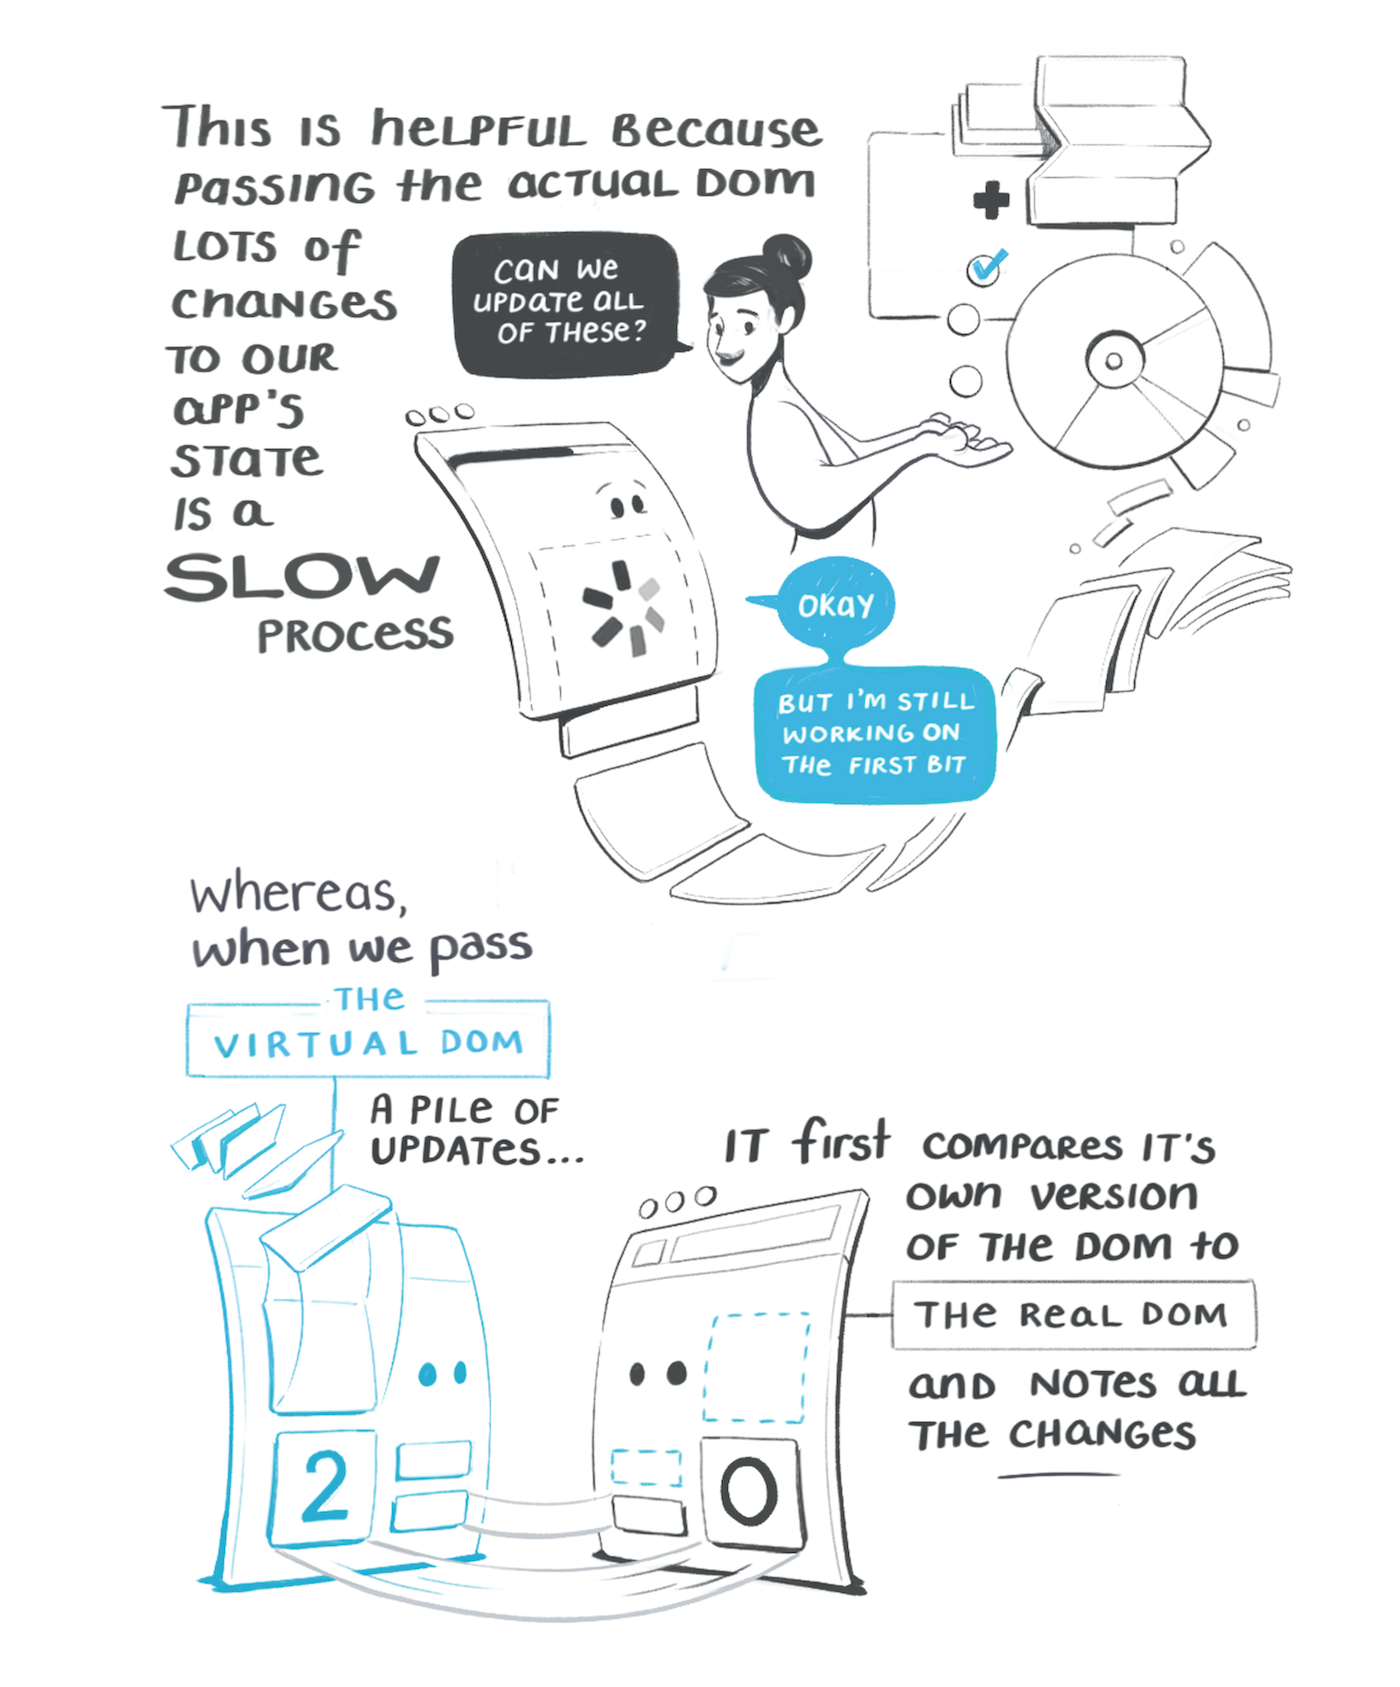 This is helpful because
passing the actual DOM
lots of
changes
to our
app's
state
is a
SLOW
process
Can we
update all
of these?
Okay
But I'm still
working on
the first bit
Whereas,
when we pass
the
Virtual DOM
a pile of
updates...
2
It first compares it's
own version
of the DOM to
the real DOM
and notes all
the changes
0